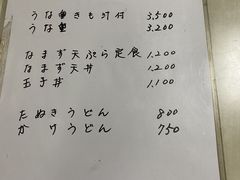 うな重きも汁付 3,500
うな重 3,200
なまず天ぷら定食 1,200
なまず天丼 1,200
玉子丼 1,100
たぬきうどん 800
かけうどん 750